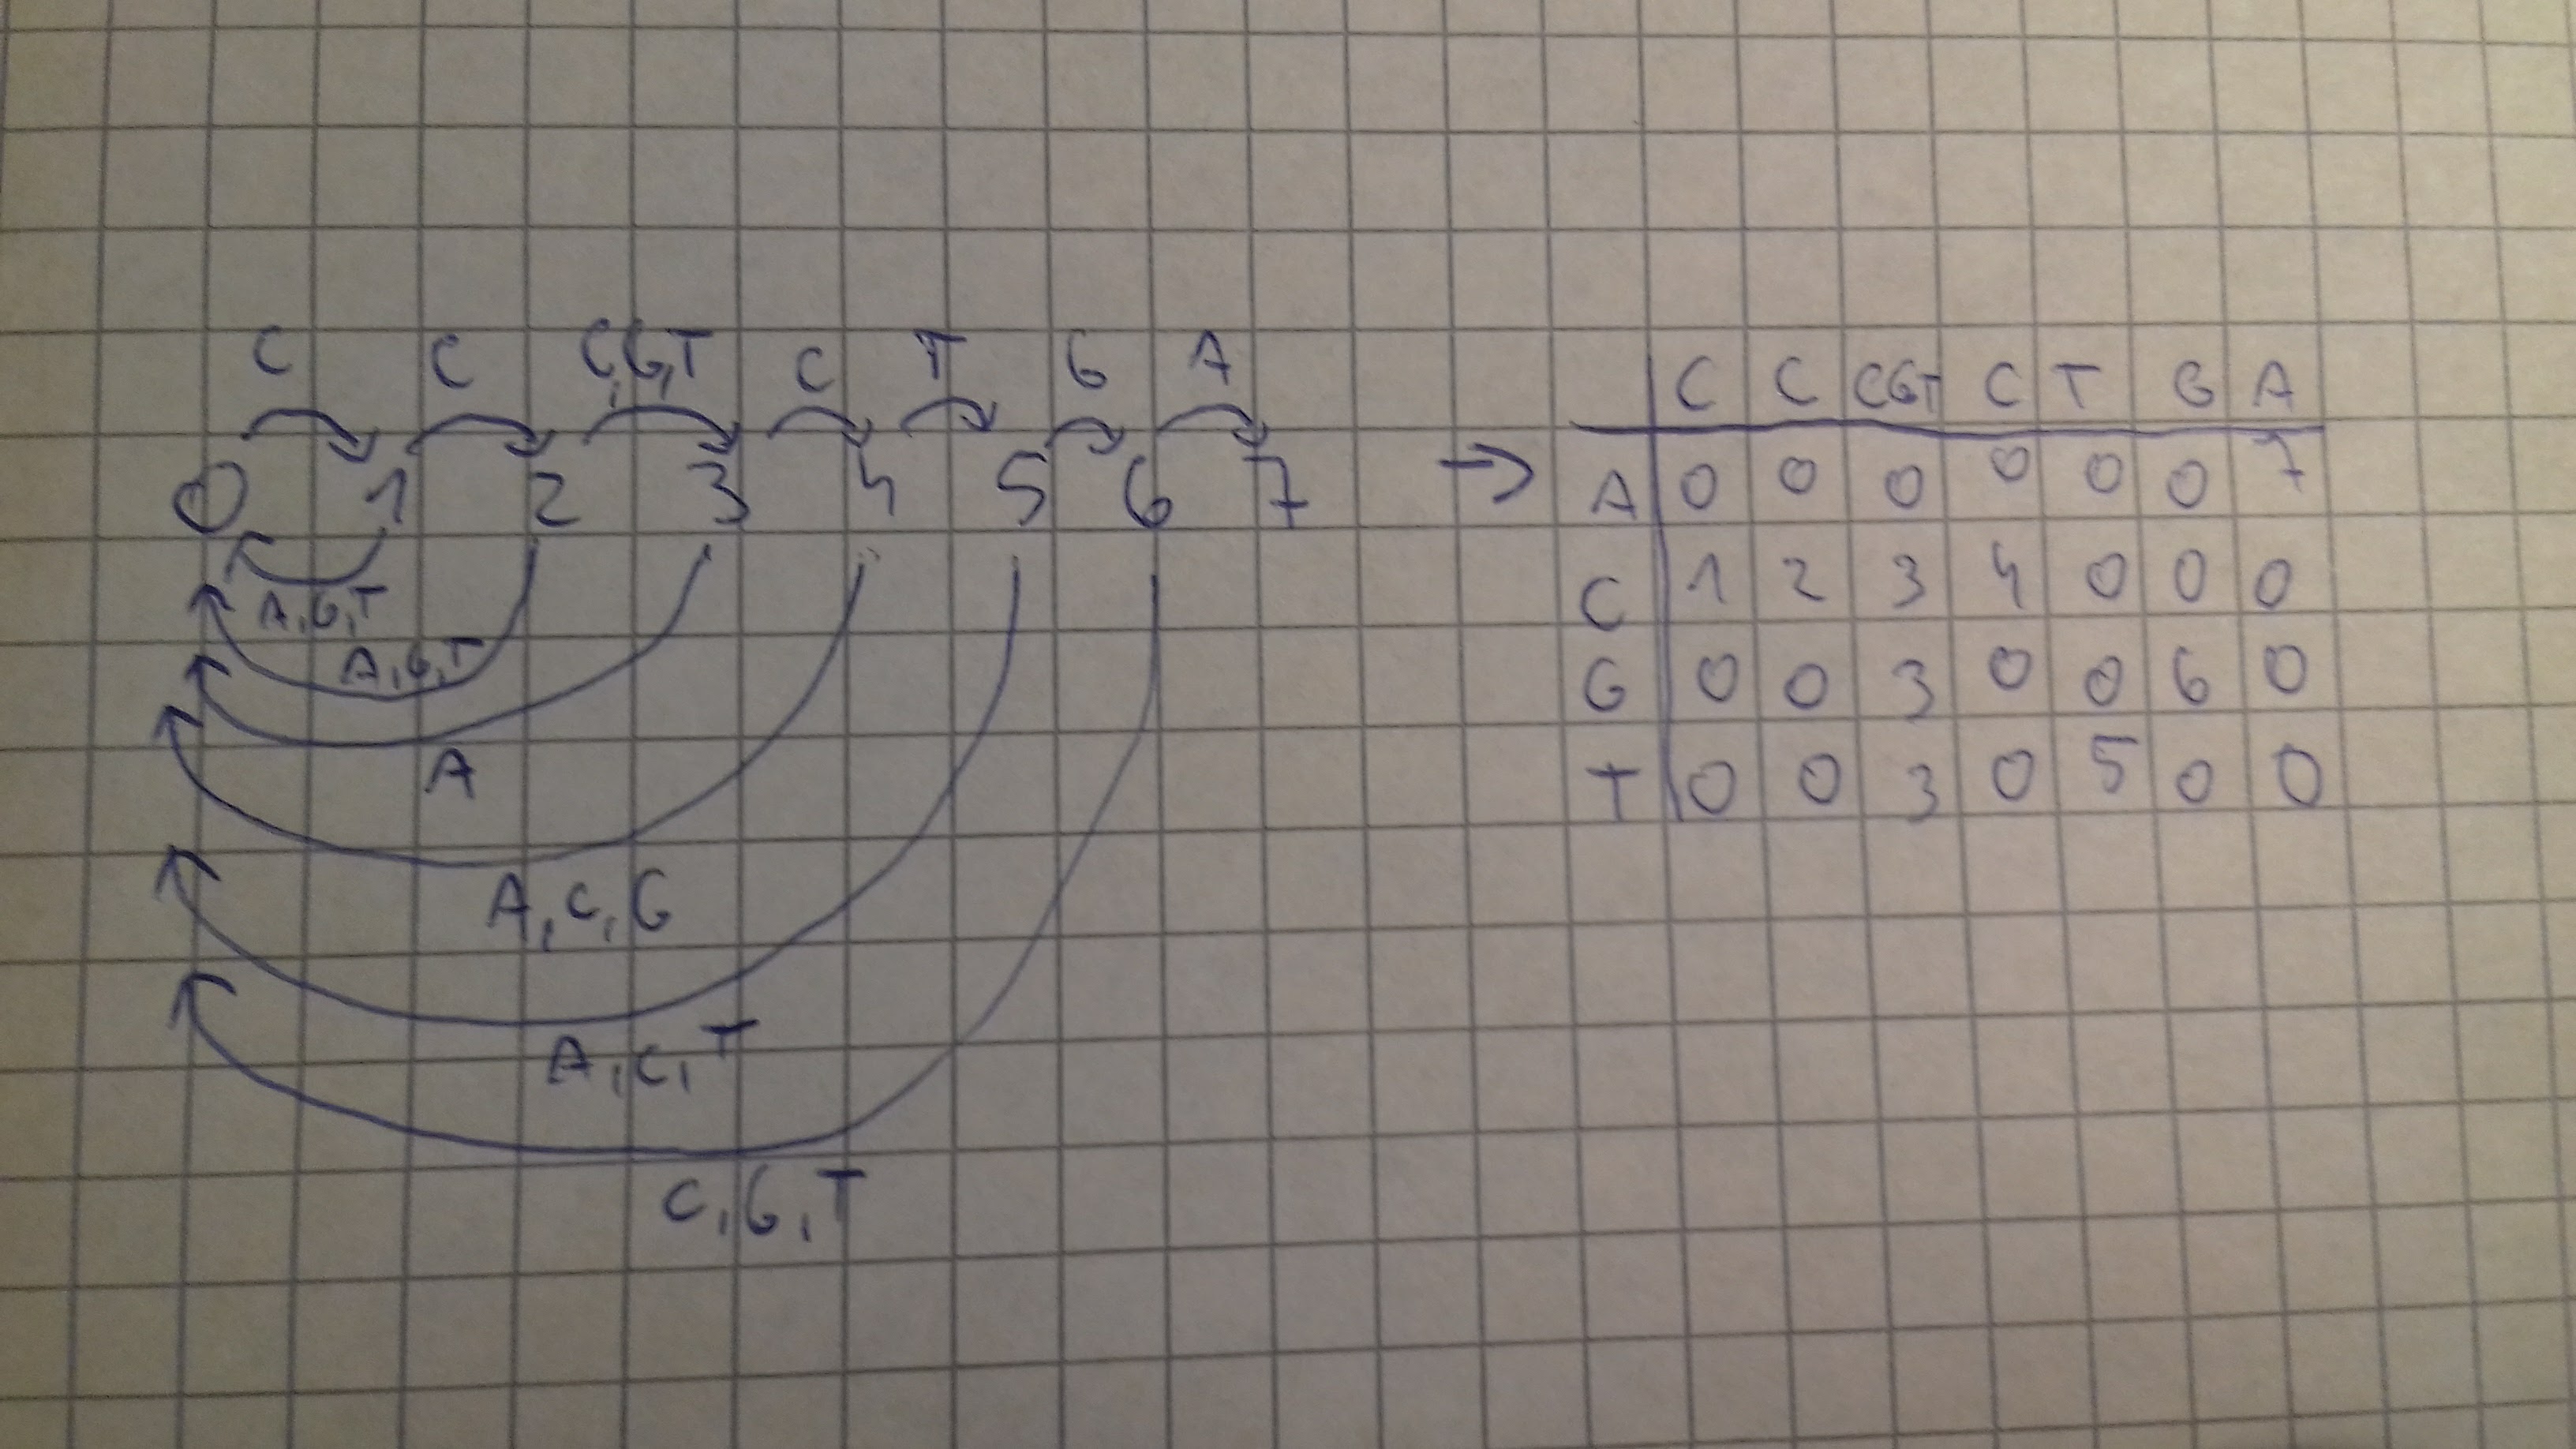 C C C,G,T C T G A
0 1 2 3 4 5 6 7
A,G,T
A,G,T
A
A,C,G
A,C,T
C,G,T
→
C C CGT C T G A
A 0 0 0 0 0 0 7
C 1 2 3 4 0 0 0
G 0 0 3 0 0 6 0
T 0 0 3 0 5 0 0